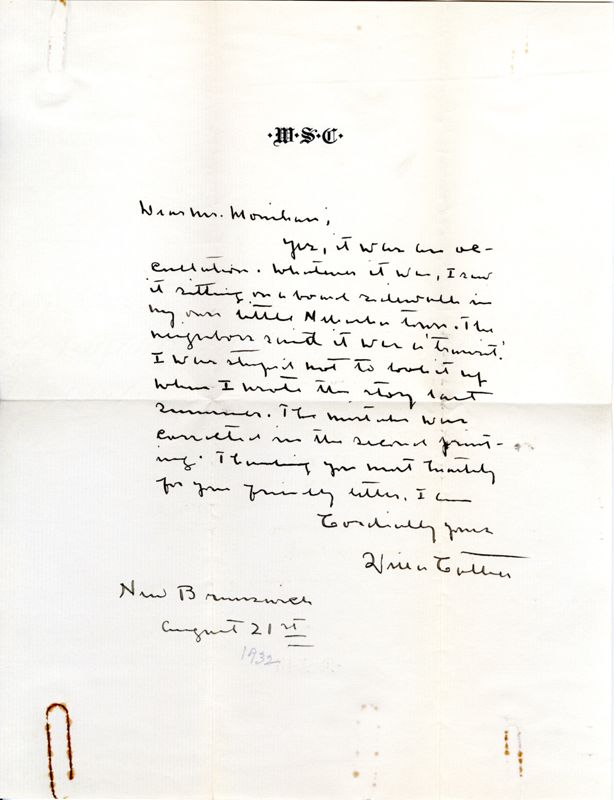 ·W·S·C·
Dear Mr. Monihan;
Yes, it was an oc-
cultation. Whatever it was, I saw
it sitting on a board sidewalk in
my own little Nebraska town. The
neighbors said it was a 'transit'.
I was stupid not to look it up
when I wrote the story last
summer. The mistake was
corrected in the second print-
ing. Thanking you most heartily
for your friendly letter, I am
Cordially yours
Willa Cather
New Brunswick
August 21st
1932